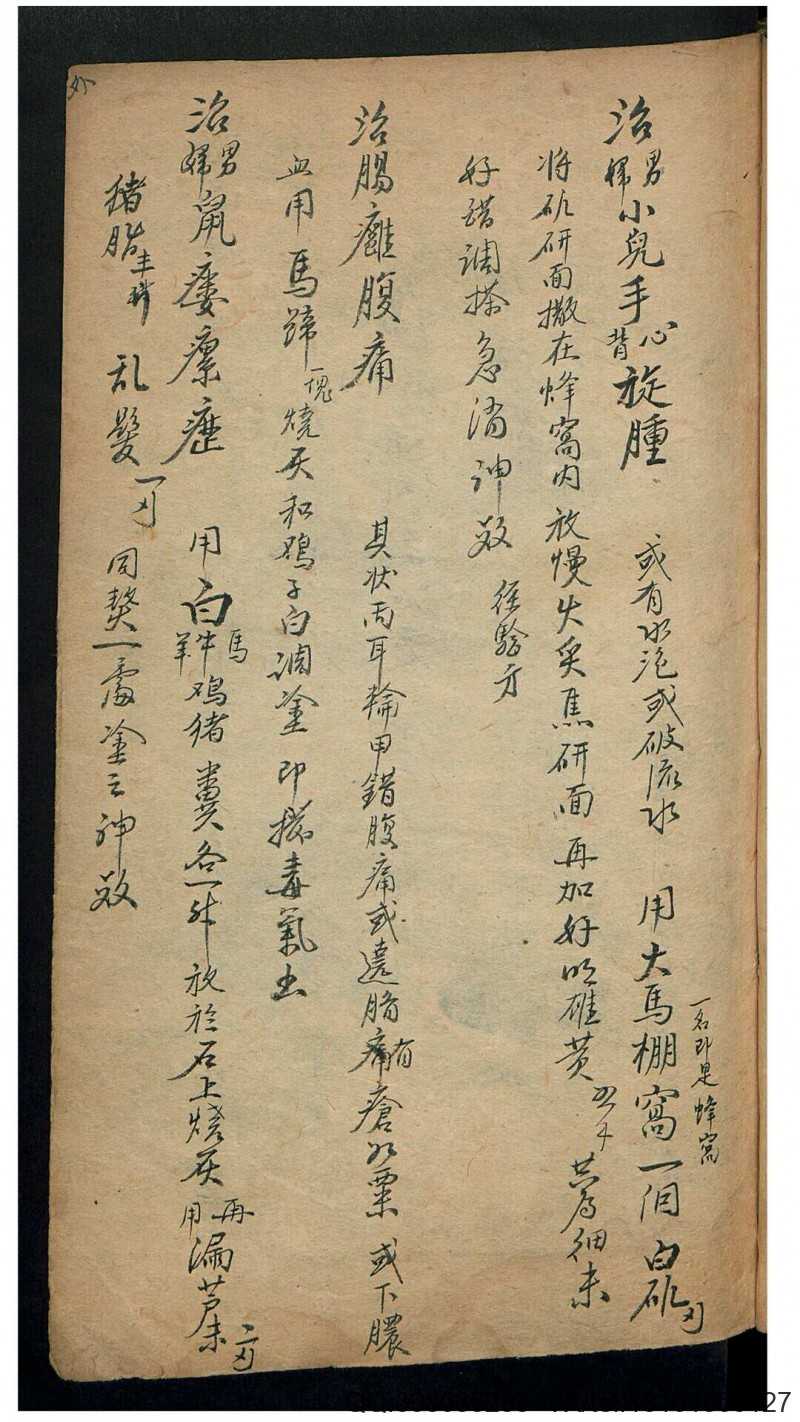 治男婦小兒手心背旋腫 或有水泡或破流水 用大馬棚窩一個 白矾刄
一名即是蜂窩
将矾研面撒在蜂窩内 放慢火炙焦研面 再加好明雄黄 共為细末
好醋調搽 急消神效 经驗方
治腸癰腹痛 其状两耳輪甲錯腹痛或遶臍痛有瘡如粟 或下膿
血用馬蹄一塊燒灰和鸡子白調塗 即拔毒氣出
治男婦鼠瘘瘰癧 用白馬牛羊鸡猪糞各一升 放於石上燒灰 再用漏芦末二刄
猪脂 乱髮一刄 同熬一處塗之神效
外